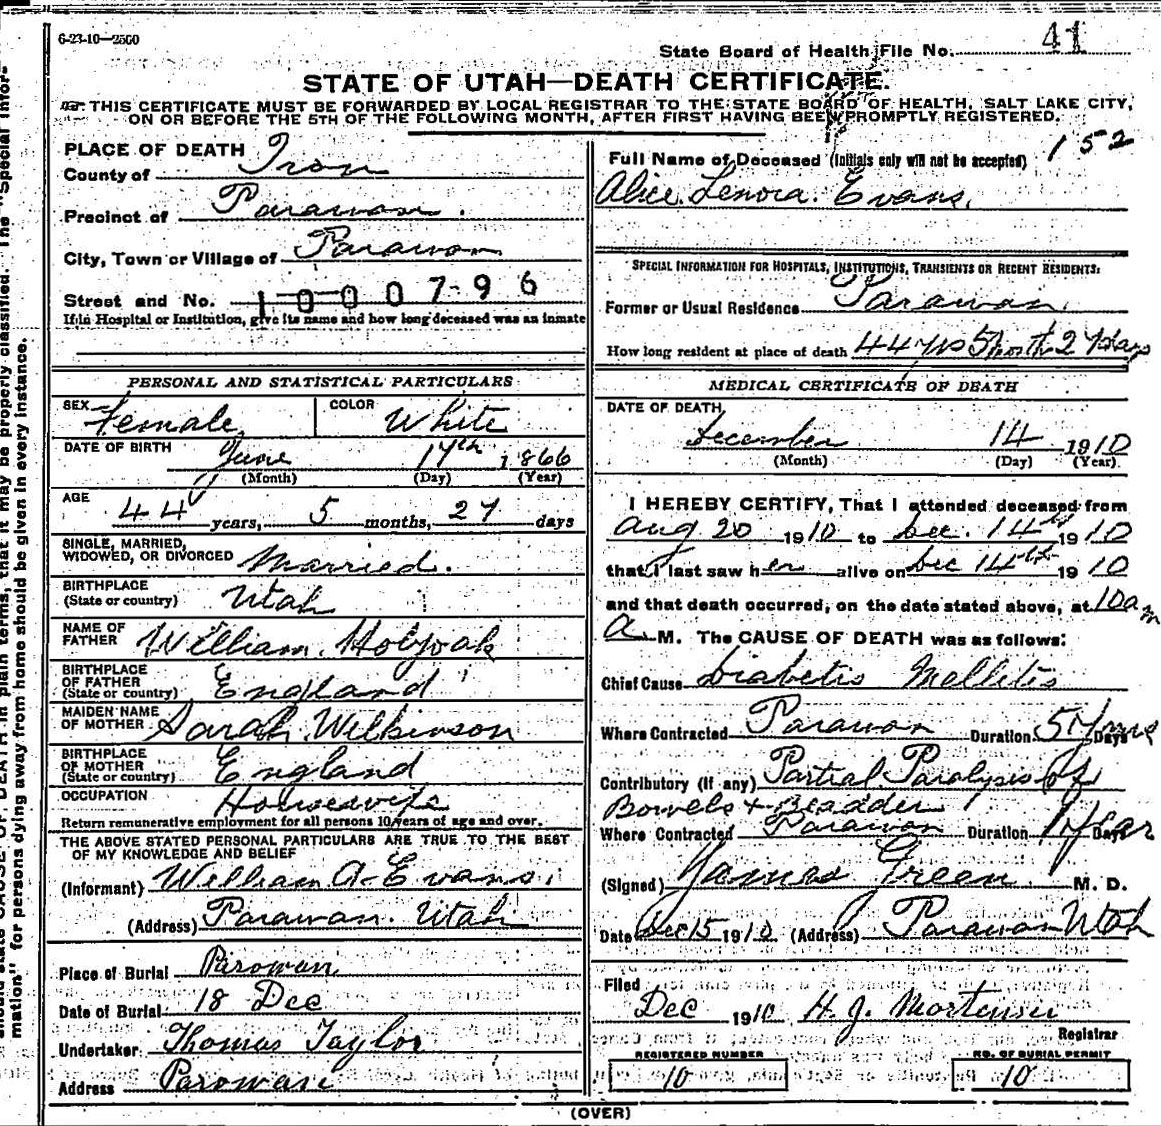 6-23-10—2500
State Board of Health File No. 41
STATE OF UTAH—DEATH CERTIFICATE.
THIS CERTIFICATE MUST BE FORWARDED BY LOCAL REGISTRAR TO THE STATE BOARD OF HEALTH, SALT LAKE CITY,
ON OR BEFORE THE 5TH OF THE FOLLOWING MONTH, AFTER FIRST HAVING BEEN PROMPTLY REGISTERED.
PLACE OF DEATH
County of Iron
Precinct of Parawan.
City, Town or Village of Parawan
Street and No. 1000796
If in Hospital or Institution, give its name and how long deceased was an inmate
PERSONAL AND STATISTICAL PARTICULARS
SEX Female COLOR White
DATE OF BIRTH June 17th 1866
(Month) (Day) (Year)
AGE 44 years, 5 months, 27 days
SINGLE, MARRIED,
WIDOWED, OR DIVORCED Married.
BIRTHPLACE
(State or country) Utah
NAME OF
FATHER William Holyoak
BIRTHPLACE
OF FATHER
(State or country) England
MAIDEN NAME
OF MOTHER Sarah Wilkinson
BIRTHPLACE
OF MOTHER
(State or country) England
OCCUPATION Housewife
Return remunerative employment for all persons 10 years of age and over.
THE ABOVE STATED PERSONAL PARTICULARS ARE TRUE TO THE BEST
OF MY KNOWLEDGE AND BELIEF
(Informant) William A. Evans.
(Address) Parawan. Utah
Place of Burial Parowan
Date of Burial 18 Dec
Undertaker Thomas Taylor
Address Parowan
152
Full Name of Deceased (Initials only will not be accepted)
Alice Lenora Evans.
SPECIAL INFORMATION FOR HOSPITALS, INSTITUTIONS, TRANSIENTS OR RECENT RESIDENTS:
Former or Usual Residence Parawan.
How long resident at place of death 44 yrs 5 month 27 days
MEDICAL CERTIFICATE OF DEATH
DATE OF DEATH
December 14 1910
(Month) (Day) (Year)
I HEREBY CERTIFY, That I attended deceased from
Aug 20 1910 to Dec. 14th 1910
that I last saw her alive on Dec 14th 1910
and that death occurred, on the date stated above, at 10 am
a M. The CAUSE OF DEATH was as follows:
Chief Cause Diabetis Mellitis
Where Contracted Parawan Duration 5 Years Days
Contributory (if any) Partial Paralysis of
Bowels & Bladder
Where Contracted Parawan Duration 1 Year Days
(Signed) James Green M. D.
Date Dec 15 1910 (Address) Parawan Utah
Filed
Dec 1910 H. J. Mortensen
Registrar
REGISTERED NUMBER NO. OF BURIAL PERMIT
10 10
(OVER)
mation" for persons dying away from home should be given in every instance.